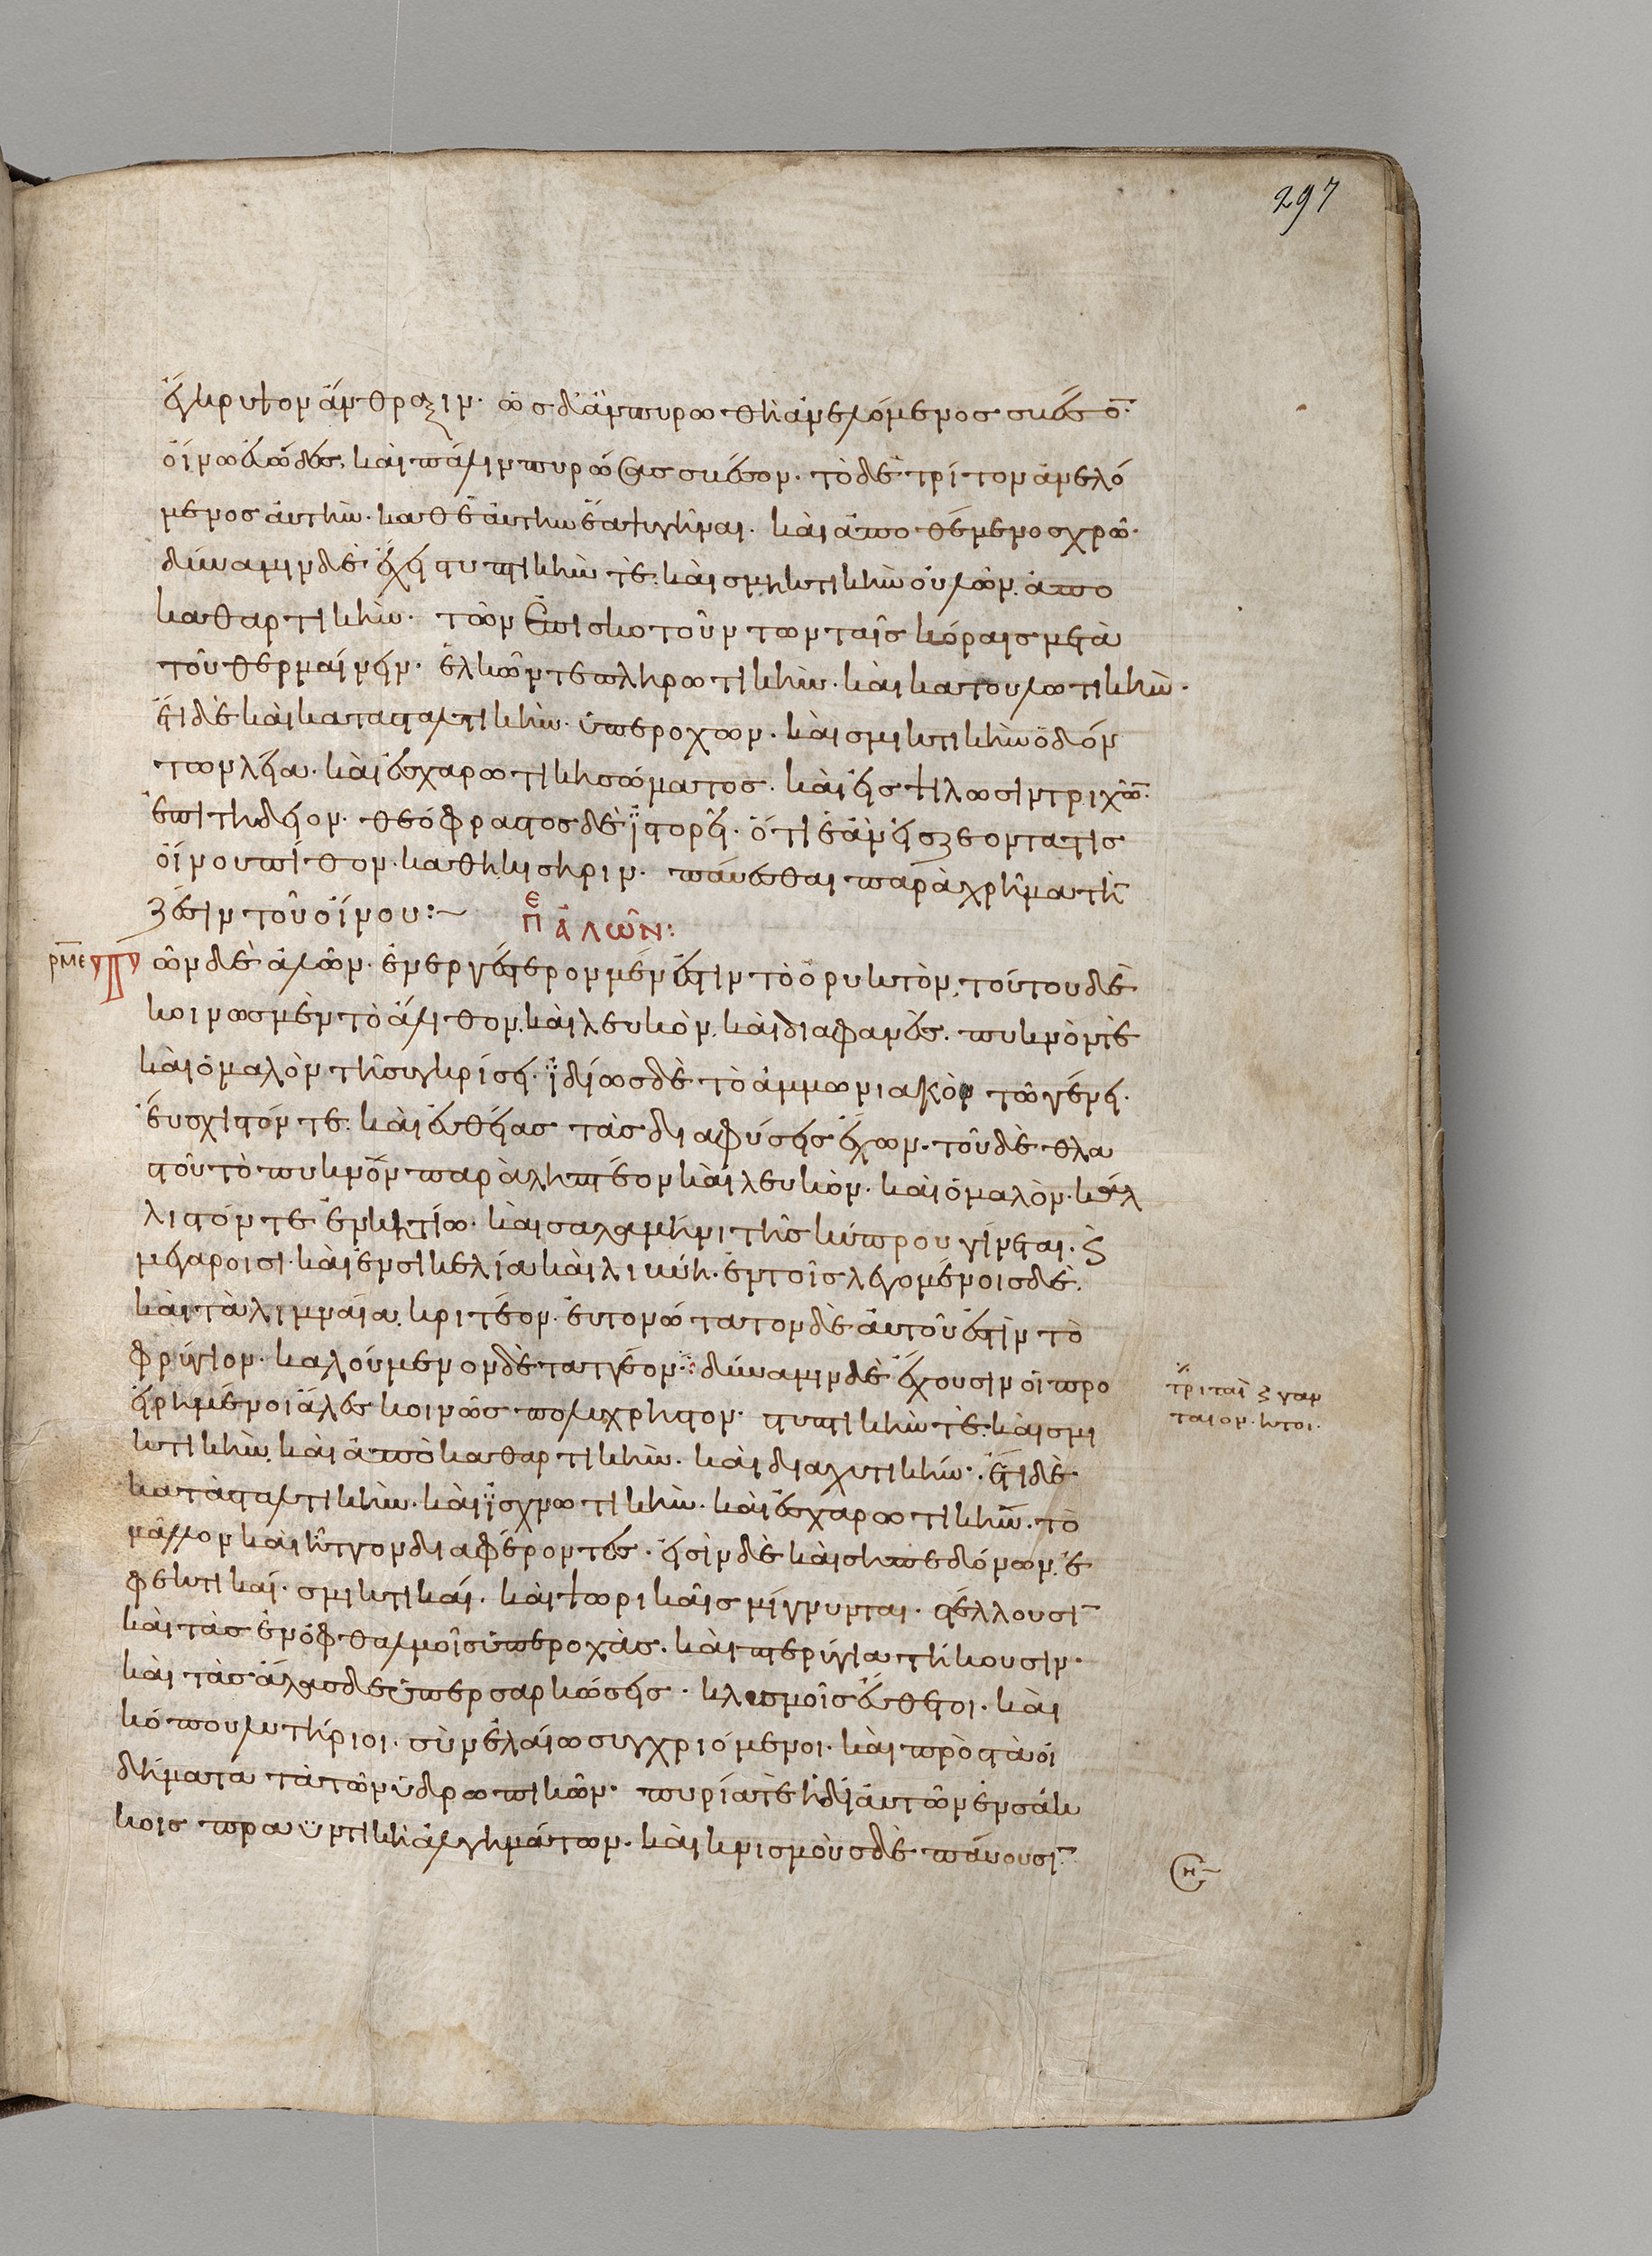 297
ἔγκρυψον ἄνθραξιν. ὡς δ' ἂν πυρωθῆ ἀνελόμενος σκέσο̅.
οἴνω εὐώδει, καὶ πάλιν πυρώσας σκέσον. τὸ δὲ τρίτον ἀνελό
μενος αὐτὴν. καθ' ἑαυτὴν ἔα ψυγῆναι. καὶ ἀποθέμενος χρῶ.
δύναμιν δὲ ἔχει στυπτικὴν τὲ. καὶ σμηκτικὴν οὐλῶν. ἀπο
καθαρτικὴν. τῶν ἐπισκοτούντων ταῖς κόραις μετὰ
τοῦ θερμαίνειν. ἑλκῶν τε πληρωτικὴν. καὶ κατουλωτικὴν.
ἔτι δὲ καὶ κατασταλτικὴν. ὑπεροχῶν. καὶ σμικτικὴν ὀδόν
των λεῖα. καὶ ἐσχαρωτικὴ σώματος. καὶ εἰς ψίλωσιν τριχῶ̅.
ἐπιτήδειον. θεόφραστος δὲ ἱστορεῖ. ὅτι ἐὰν εἰς ζέοντα τις
οἴνου πίθον. καθῆ κισηριν. παύεσθαι παρὰ χρῆμα τὴ̅
ζέσιν τοῦ οἴνου:~ Πε ἁλῶν:
ρμε Τῶν δὲ ἁλῶν. ἐνεργέστερον μέν ἐστιν τὸ ὀρυκτὸν, τούτου δὲ
κοινῶς μὲν τὸ ἄλιθον, καὶ λευκὸν, καὶ διαφανές. πυκνὸν τὲ
καὶ ὁμαλὸν τῆ συγκρίσει. ἰδίως δὲ τὸ ἀμμωνιακὸν τῶ γένει.
ἐυσχιστόν τε. καὶ εὐθείας τὰς διαφύσεις ἔχων. τοῦ δὲ θλα
στοῦ τὸ πυκνὸν παρὰληπτέον καὶ λευκὸν. καὶ ὁμαλὸν. κάλ
λιστόν τε ἐν κιτίω. καὶ σαλαμῖνι τῆς κύπρου γίνεται. ϛ
μεγαροισι. καὶ ἐν σικελία καὶ λιβύη. ἐν τοῖς λεγομένοις δὲ.
καὶ τὰ λιμναῖα. κριτέον. ἐυτονώτατον δὲ αὐτοῦ ἐστὶν τὸ
φρύγιον. καλούμενον δὲ ταττέον. δύναμιν δὲ ἔχουσιν οἱ προ
τριταῖ ϛ γατ
ταιον. κτοι.
ειρημένοι ἅλες κοινῶς πολύχρηστον. στυπτικὴν τὲ. καὶ σμι
κτικὴν. καὶ ἀπὸκαθαρτικὴν. καὶ διαλυτικήν. ἔτι δὲ
κατασταλτικὴν. καὶ ἰσχνωτικὴν. καὶ ἐσχαρωτικὴν. τὸ
μᾶλλον καὶ ἧττον διαφέροντες. εἰσὶν δὲ καὶ σηπεδόνων. ἐ
φεκτικαί. σμικτικαί. καὶ ψωρικαῖς μίγνυνται. στέλλουσι̅
καὶ τὰς ἐν ὀφθαλμοῖς ὑπεροχὰς. καὶ πτερύγια τήκουσιν.
καὶ τὰς ἄλλας δὲ ὑπερσαρκώσεις. κλυσμοῖς εὔθετοι. καὶ
κόπου λυτήριοι. σὺν ἐλαίω συγχριόμενοι. καὶ πρὸς τὰ οἰ
δήματα τὰ τῶν ὑδρωπικῶν. πυρίατὲ ἡ δι' αὐτῶν ἐν σάκ
κοις πραϋντικὴ ἀλγημάτων. καὶ κνισμοὺς δὲ παύουσι̅.